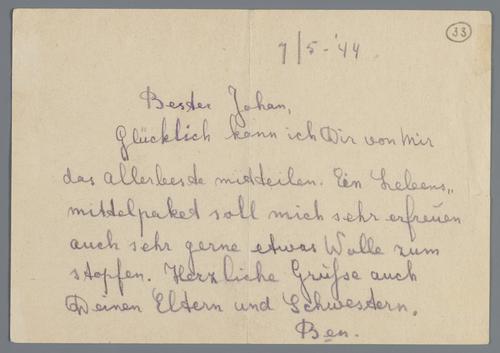 33
7/5-'44
Bester Johan,
Glücklich kann ich Dir von Mir
das allerbeste mitteilen. Ein Lebens„
mittelpaket soll mich sehr erfreuen
auch sehr gerne etwas Wolle zum
stopfen. Herzliche Grüsse auch
Deinen Eltern und Schwestern.
Ben.